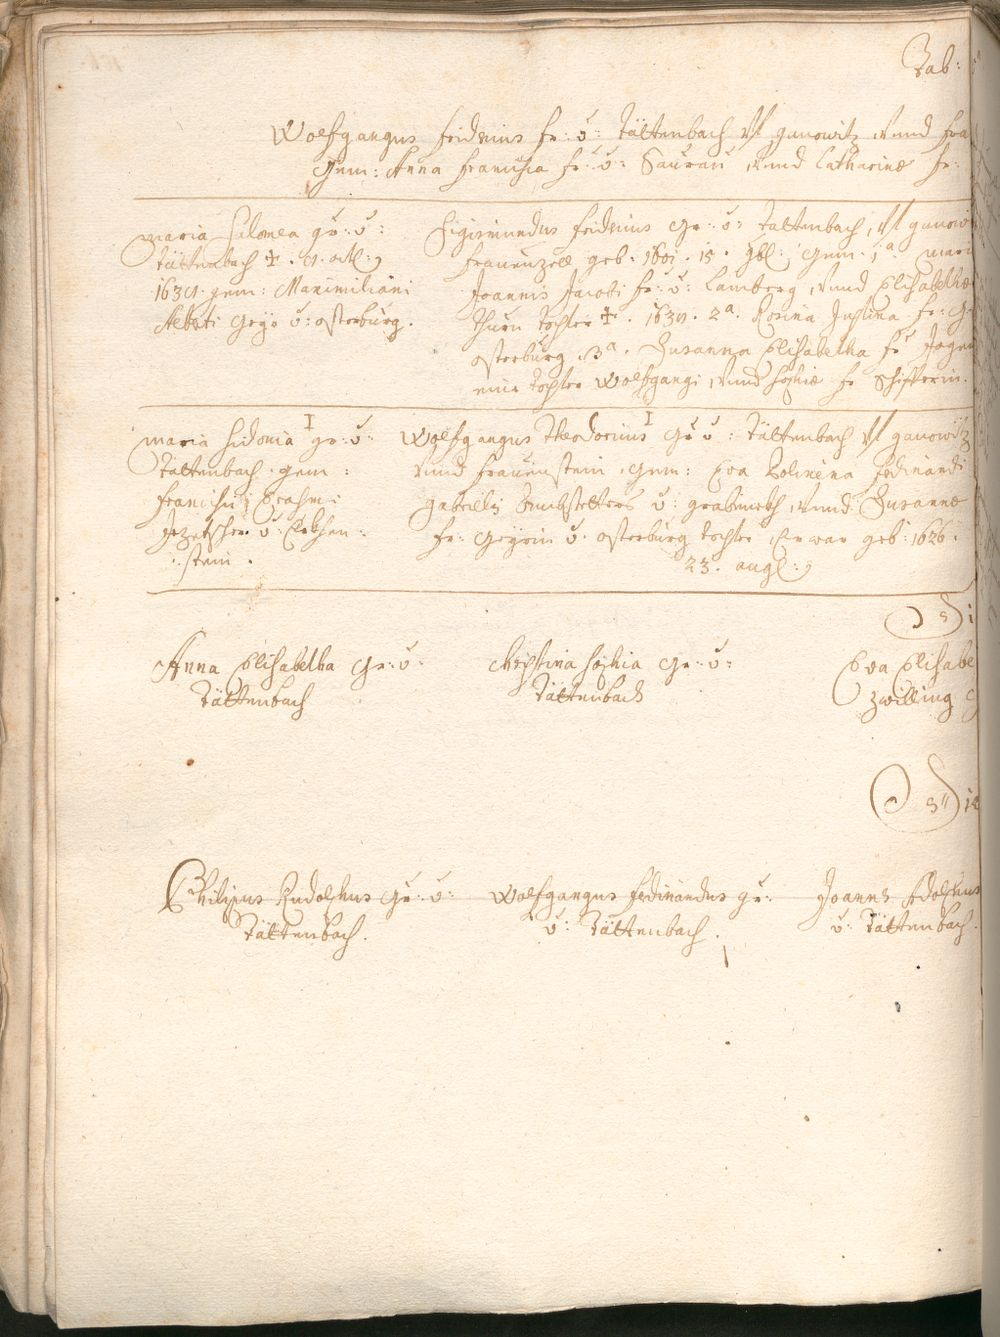 Tab:
Wolfgangus Fridricus Fr: v: Tättenbach auf Ganowitz, vnnd Fra
Gem: Anna Francisca Fr: v: Saurau, vnnd Catharinæ Fr:
Maria Salomea Gr: v:
Tättenbach †. 9. octl:
1639. gem: Maximiliani
Alberti Geyr v: Osterburg.
Sigismundus Fridricus Gr: v: Tattenbach, auf Ganow
Frauenzell geb. 1601. 15. 9bl: Gem: 1ª. Mari
Joannis Jacobi Fr: v: Lamberg, vnnd Elisabethæ
Thurn Tochter †. 1639. 2ª. Rosina Justina Fr: G
Osterburg. 3ª. Susanna Elisabetha Fr Jagen
eine Tochter Wolfgangi, vnnd Sophiæ Fr Schifferin.
Maria Sidonia Gr: v:
Tättenbach. gem:
Francisci Erasmi
v:
stein.
Wolfgangus Theodoricus Gr: v: Tättenbach auf Ganowitz
vnnd Frauenstein. Gem: Eva Ferdinandi
Gabrielis v: vnnd Susannæ
Fr: Geyrin v. Osterburg Tochter, Er war geb: 1626.
23. augl:
Anna Elisabetha Gr: v:
Tättenbach
Christina Sophia Gr: v:
Tättenbach
Eva Elisabe
Zwilling G
Philipus Rudolphus Gr: v:
Tättenbach.
Wolfgangus Ferdinandus Gr:
v: Tättenbach.
Joannes Adolphus
v: Tättenbach.